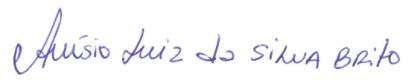 Aluísio Luiz da Silva Brito